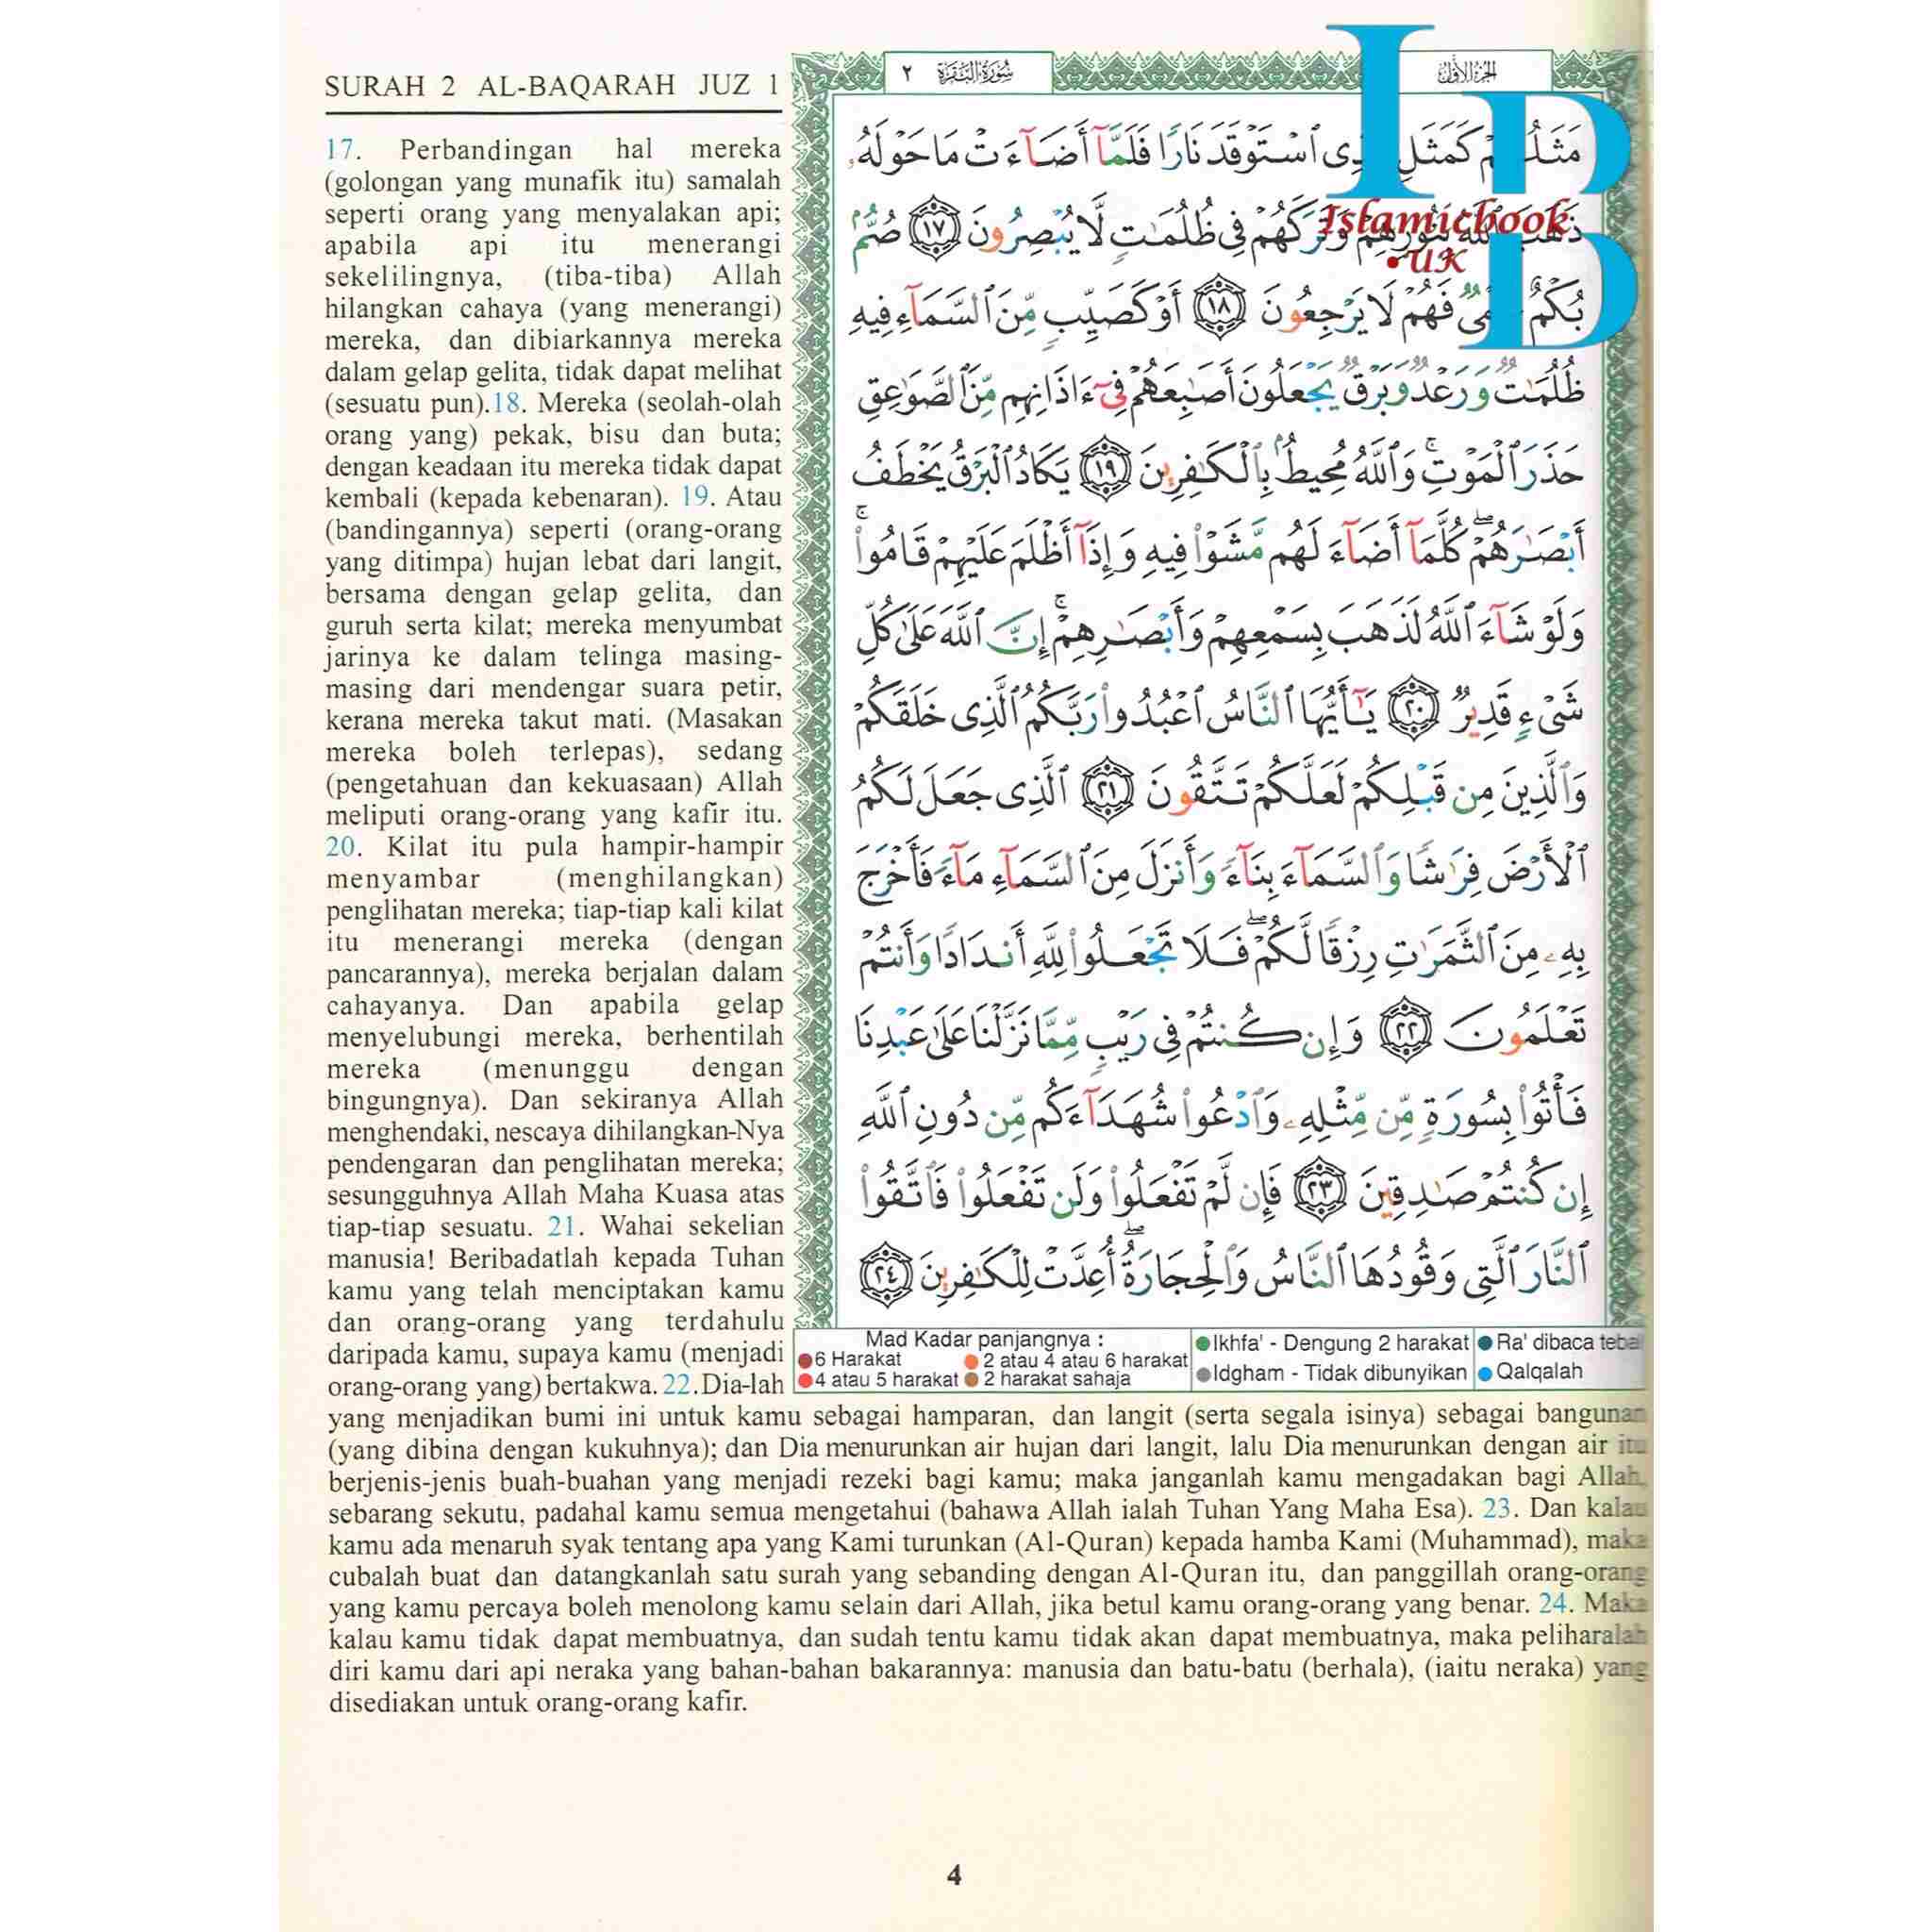 SURAH 2 AL-BAQARAH JUZ 1
17. Perbandingan hal mereka
(golongan yang munafik itu) samalah
seperti orang yang menyalakan api;
apabila api itu menerangi
sekelilingnya, (tiba-tiba) Allah
hilangkan cahaya (yang menerangi)
mereka, dan dibiarkannya mereka
dalam gelap gelita, tidak dapat melihat
(sesuatu pun).18. Mereka (seolah-olah
orang yang) pekak, bisu dan buta;
dengan keadaan itu mereka tidak dapat
kembali (kepada kebenaran). 19. Atau
(bandingannya) seperti (orang-orang
yang ditimpa) hujan lebat dari langit,
bersama dengan gelap gelita, dan
guruh serta kilat; mereka menyumbat
jarinya ke dalam telinga masing-
masing dari mendengar suara petir,
kerana mereka takut mati. (Masakan
mereka boleh terlepas), sedang
(pengetahuan dan kekuasaan) Allah
meliputi orang-orang yang kafir itu.
20. Kilat itu pula hampir-hampir
menyambar (menghilangkan)
penglihatan mereka; tiap-tiap kali kilat
itu menerangi mereka (dengan
pancarannya), mereka berjalan dalam
cahayanya. Dan apabila gelap
menyelubungi mereka, berhentilah
mereka (menunggu dengan
bingungnya). Dan sekiranya Allah
menghendaki, nescaya dihilangkan-Nya
pendengaran dan penglihatan mereka;
sesungguhnya Allah Maha Kuasa atas
tiap-tiap sesuatu. 21. Wahai sekelian
manusia! Beribadatlah kepada Tuhan
kamu yang telah menciptakan kamu
dan orang-orang yang terdahulu
daripada kamu, supaya kamu (menjadi
orang-orang yang) bertakwa. 22. Dia-lah
الجزء الأول
سورة البقرة ٢
IBD
Islamicbook
.UK
مَثَلُهُمْ كَمَثَلِ ٱلَّذِى ٱسْتَوْقَدَ نَارًا فَلَمَّآ أَضَآءَتْ مَا حَوْلَهُۥ
ذَهَبَ ٱللَّهُ بِنُورِهِمْ وَتَرَكَهُمْ فِى ظُلُمَـٰتٍ لَّا يُبْصِرُونَ ١٧ صُمٌّۢ
بُكْمٌ عُمْىٌ فَهُمْ لَا يَرْجِعُونَ ١٨ أَوْ كَصَيِّبٍ مِّنَ ٱلسَّمَآءِ فِيهِ
ظُلُمَـٰتٌ وَرَعْدٌ وَبَرْقٌ يَجْعَلُونَ أَصَـٰبِعَهُمْ فِىٓ ءَاذَانِهِم مِّنَ ٱلصَّوَٰعِقِ
حَذَرَ ٱلْمَوْتِ ۚ وَٱللَّهُ مُحِيطٌۢ بِٱلْكَـٰفِرِينَ ١٩ يَكَادُ ٱلْبَرْقُ يَخْطَفُ
أَبْصَـٰرَهُمْ ۖ كُلَّمَآ أَضَآءَ لَهُم مَّشَوْا۟ فِيهِ وَإِذَآ أَظْلَمَ عَلَيْهِمْ قَامُوا۟ ۚ
وَلَوْ شَآءَ ٱللَّهُ لَذَهَبَ بِسَمْعِهِمْ وَأَبْصَـٰرِهِمْ ۚ إِنَّ ٱللَّهَ عَلَىٰ كُلِّ
شَىْءٍ قَدِيرٌ ٢٠ يَـٰٓأَيُّهَا ٱلنَّاسُ ٱعْبُدُوا۟ رَبَّكُمُ ٱلَّذِى خَلَقَكُمْ
وَٱلَّذِينَ مِن قَبْلِكُمْ لَعَلَّكُمْ تَتَّقُونَ ٢١ ٱلَّذِى جَعَلَ لَكُمُ
ٱلْأَرْضَ فِرَٰشًا وَٱلسَّمَآءَ بِنَآءً وَأَنزَلَ مِنَ ٱلسَّمَآءِ مَآءً فَأَخْرَجَ
بِهِۦ مِنَ ٱلثَّمَرَٰتِ رِزْقًا لَّكُمْ ۖ فَلَا تَجْعَلُوا۟ لِلَّهِ أَندَادًا وَأَنتُمْ
تَعْلَمُونَ ٢٢ وَإِن كُنتُمْ فِى رَيْبٍ مِّمَّا نَزَّلْنَا عَلَىٰ عَبْدِنَا
فَأْتُوا۟ بِسُورَةٍ مِّن مِّثْلِهِۦ وَٱدْعُوا۟ شُهَدَآءَكُم مِّن دُونِ ٱللَّهِ
إِن كُنتُمْ صَـٰدِقِينَ ٢٣ فَإِن لَّمْ تَفْعَلُوا۟ وَلَن تَفْعَلُوا۟ فَٱتَّقُوا۟
ٱلنَّارَ ٱلَّتِى وَقُودُهَا ٱلنَّاسُ وَٱلْحِجَارَةُ ۖ أُعِدَّتْ لِلْكَـٰفِرِينَ ٢٤
Mad Kadar panjangnya :
6 Harakat 2 atau 4 atau 6 harakat
4 atau 5 harakat 2 harakat sahaja
Ikhfa' - Dengung 2 harakat
Idgham - Tidak dibunyikan
Ra' dibaca tebal
Qalqalah
yang menjadikan bumi ini untuk kamu sebagai hamparan, dan langit (serta segala isinya) sebagai bangunan
(yang dibina dengan kukuhnya); dan Dia menurunkan air hujan dari langit, lalu Dia menurunkan dengan air itu
berjenis-jenis buah-buahan yang menjadi rezeki bagi kamu; maka janganlah kamu mengadakan bagi Allah,
sebarang sekutu, padahal kamu semua mengetahui (bahawa Allah ialah Tuhan Yang Maha Esa). 23. Dan kalau
kamu ada menaruh syak tentang apa yang Kami turunkan (Al-Quran) kepada hamba Kami (Muhammad), maka
cubalah buat dan datangkanlah satu surah yang sebanding dengan Al-Quran itu, dan panggillah orang-orang
yang kamu percaya boleh menolong kamu selain dari Allah, jika betul kamu orang-orang yang benar. 24. Maka
kalau kamu tidak dapat membuatnya, dan sudah tentu kamu tidak akan dapat membuatnya, maka peliharalah
diri kamu dari api neraka yang bahan-bahan bakarannya: manusia dan batu-batu (berhala), (iaitu neraka) yang
disediakan untuk orang-orang kafir.
4